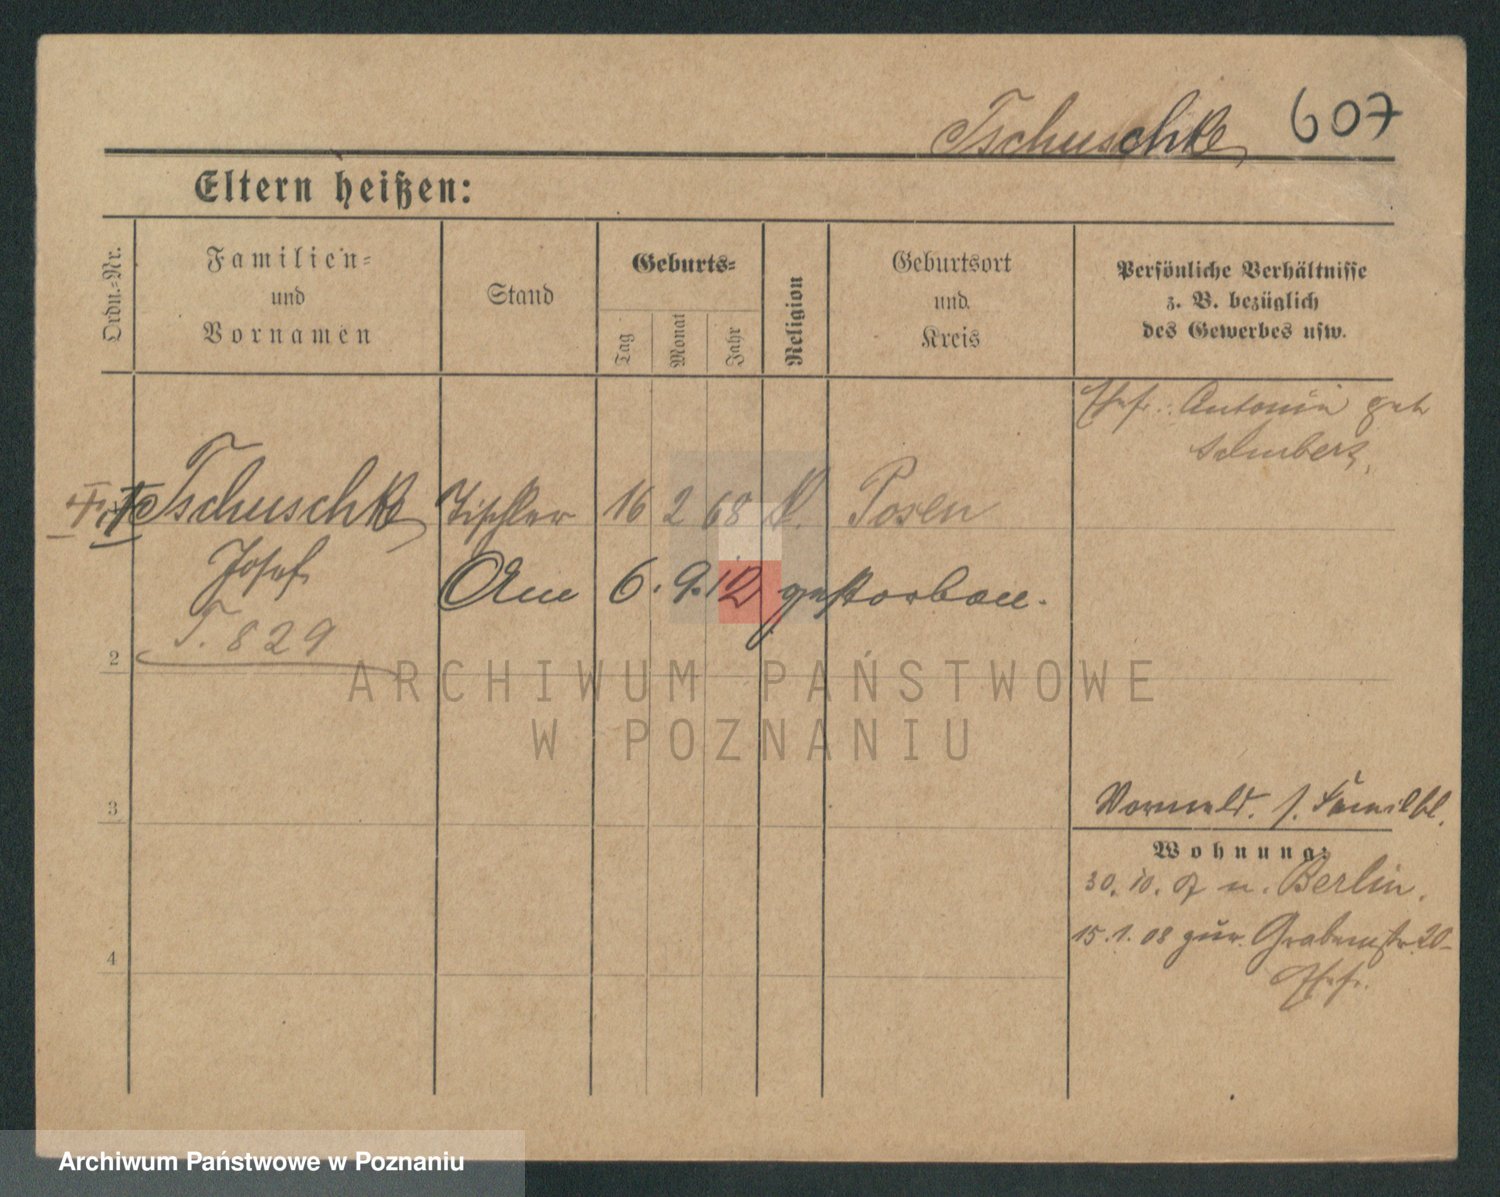 Tschuschke 607
Eltern heißen:
Ordn.-Nr.
Familien-
und
Vornamen
Stand
Geburts-
Tag
Monat
Jahr
Religion
Geburtsort
und
Kreis
Persönliche Verhältnisse
z. B. bezüglich
des Gewerbes usw.
Ehefr.: Antonia geb
Schubert,
Tschuschke Tischler 16 2 68 k. Posen
Josef
Am 6. 9. 12 gestorben.
T. 829
2
3
4
Vormeld. s. Familbl.
Wohnung:
30. 10. 07 n. Berlin.
15. 1. 08 zur. Grabenstr 20
Ehefr.
ARCHIWUM PAŃSTWOWE
W POZNANIU
Archiwum Państwowe w Poznaniu